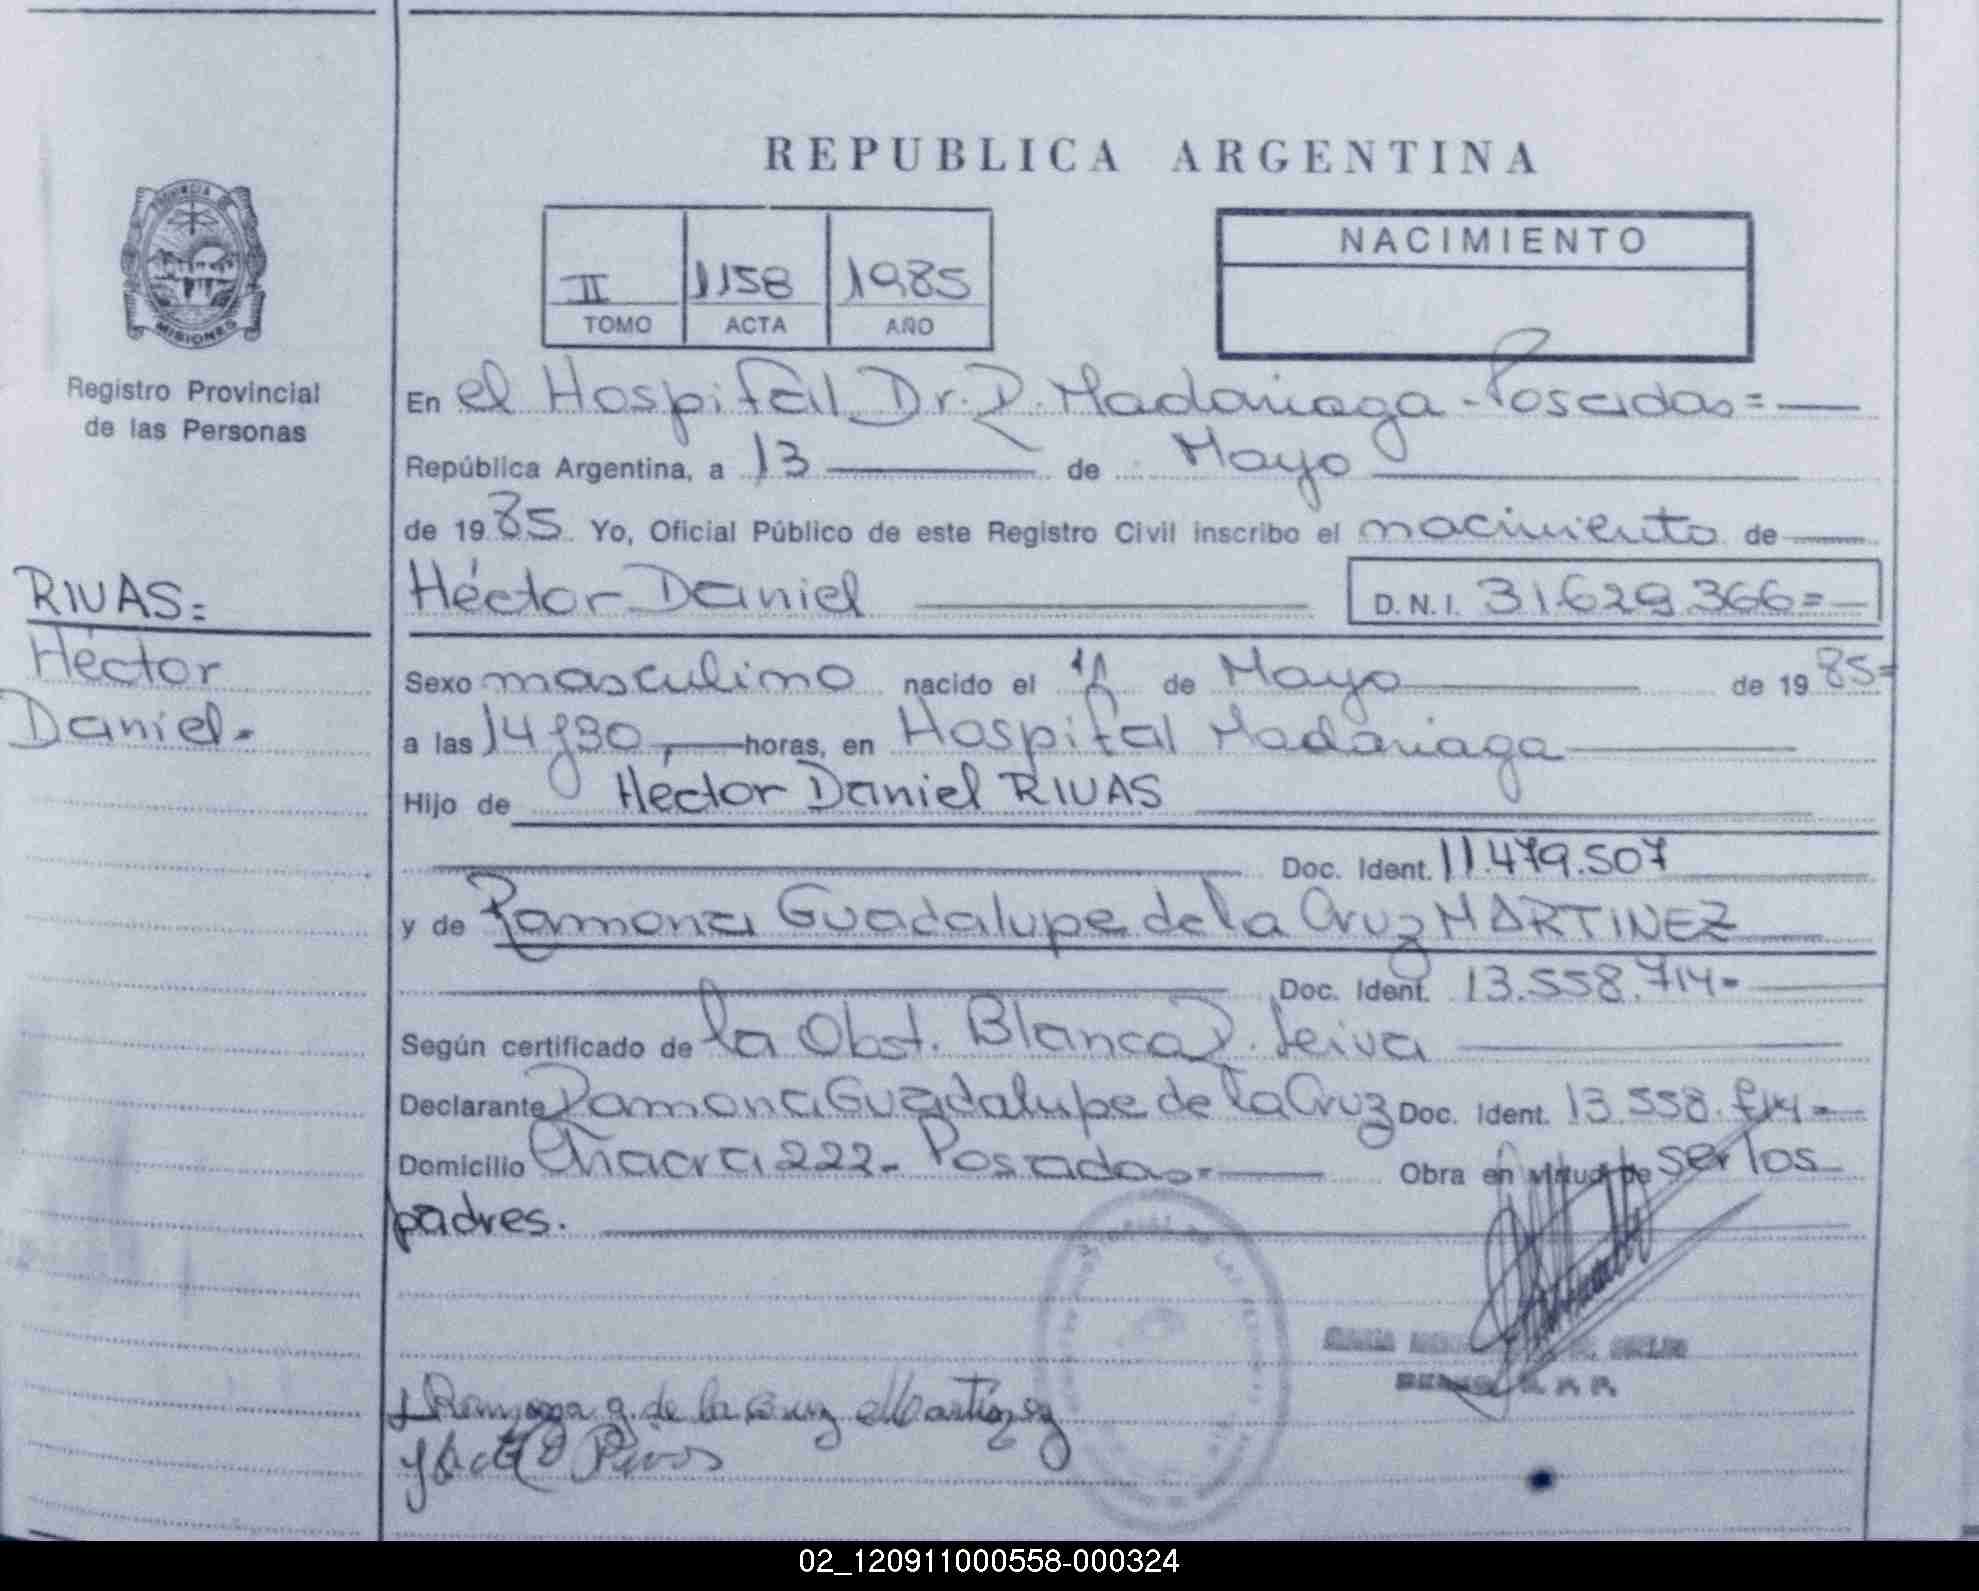 REPUBLICA ARGENTINA
PROVINCIA DE
MISIONES
Registro Provincial
de las Personas
II 1158 1985
TOMO ACTA AÑO
NACIMIENTO
En el Hospital Dr. R. Madariaga - Posadas = —
República Argentina, a 13 — de Mayo —
de 19 85 Yo, Oficial Público de este Registro Civil inscribo el nacimiento de —
RIVAS =
Héctor
Daniel.-
Héctor Daniel — D.N.I. 31.629.366 = —
Sexo masculino nacido el de Mayo — de 19 85 =
a las 14 y 30, — horas, en Hospital Madariaga —
Hijo de Hector Daniel RIVAS —
— Doc. Ident. 11.479.507 —
y de Ramona Guadalupe de la Cruz MARTINEZ —
— Doc. Ident. 13.558.714 - —
Según certificado de la Obst. Blanca R. Leiva —
Declarante Ramona Guadalupe de la Cruz Doc. Ident. 13.558.714 = —
Domicilio Chacra 222 - Posadas = — Obra en virtud de ser los
padres. —
Ramona G. de la Cruz Martinez
02_120911000558-000324